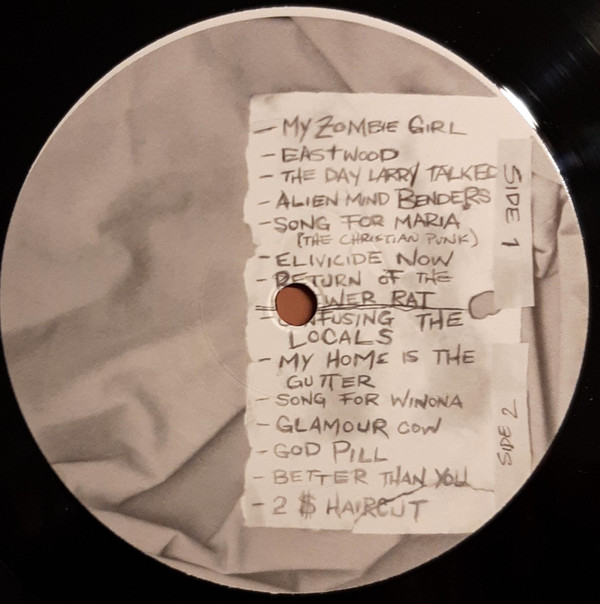 - MY ZOMBIE GIRL
- EASTWOOD
- THE DAY LARRY TALKED
- ALIEN MIND BENDERS
- SONG FOR MARIA
(THE CHRISTIAN PUNK)
- ELIVICIDE NOW
- RETURN OF THE
WER RAT
- FUSING THE
LOCALS
- MY HOME IS THE
GUTTER
- SONG FOR WINONA
- GLAMOUR COW
- GOD PILL
- BETTER THAN YOU
- 2 $ HAIRCUT
SIDE 1
SIDE 2